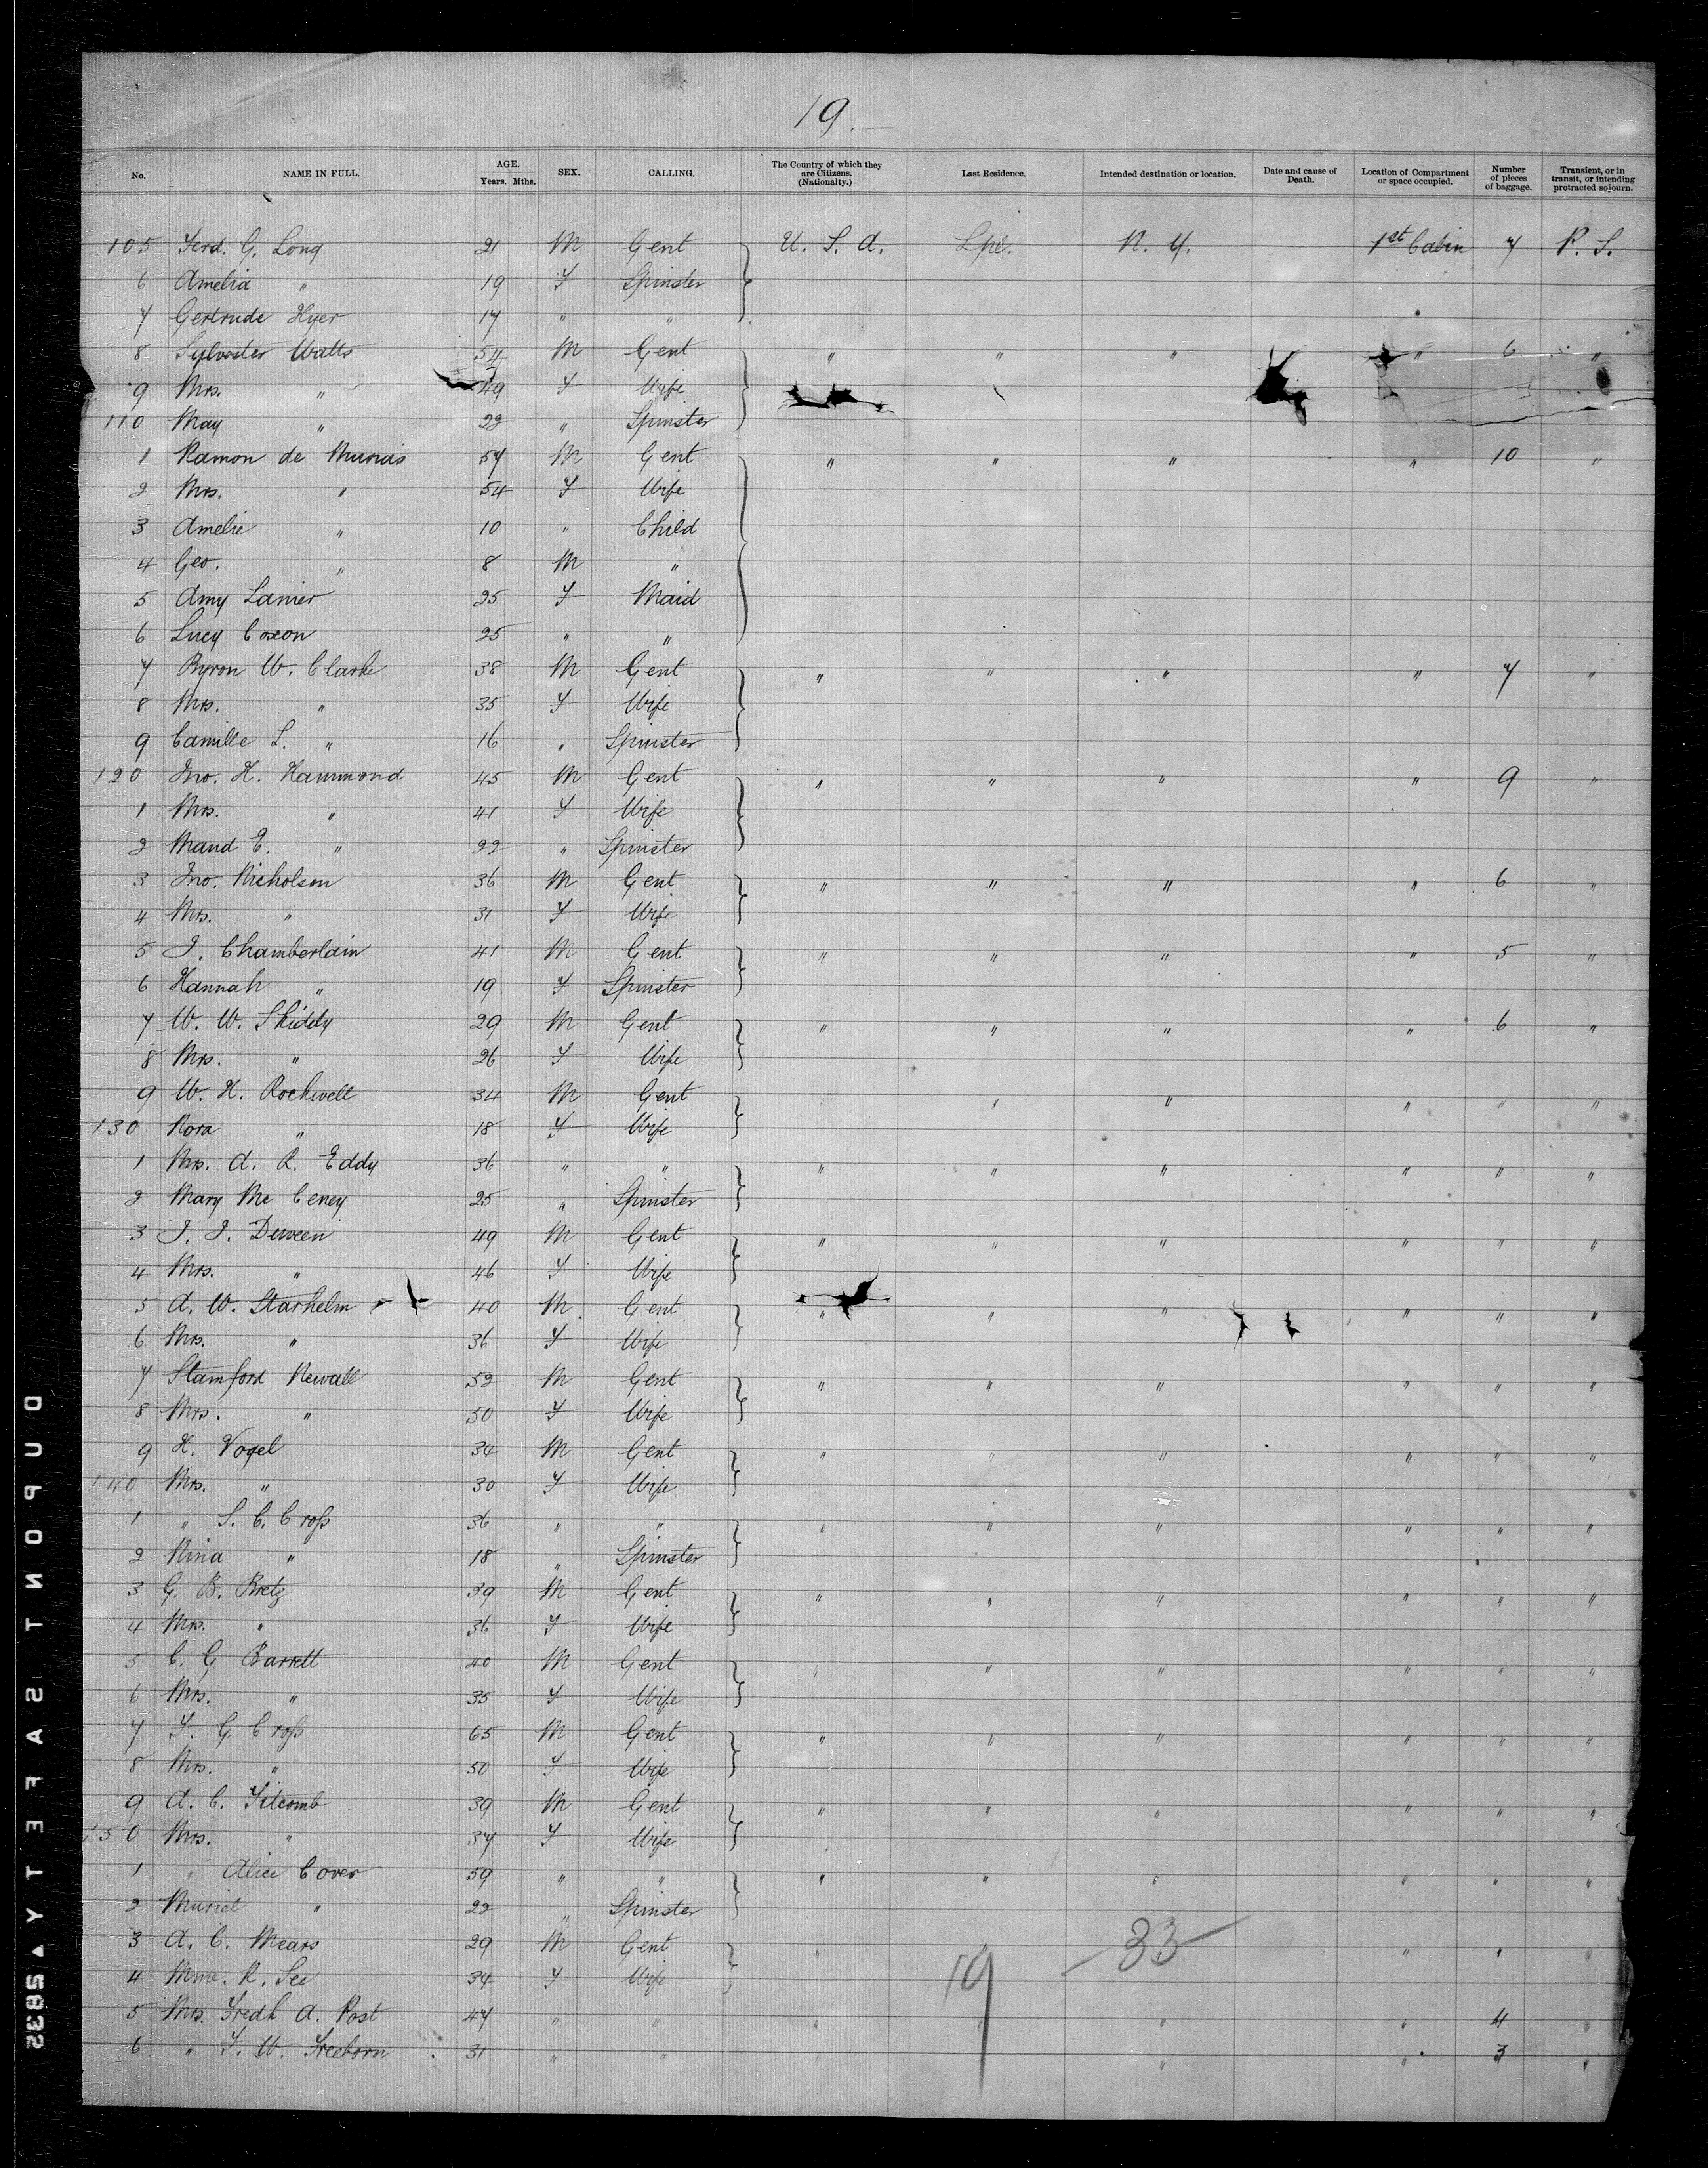 19.
No. NAME IN FULL. AGE. Years. Mths. SEX. CALLING. The Country of which they are Citizens. (Nationalty.) Last Residence. Intended destination or location. Date and cause of Death. Location of Compartment or space occupied. Number of pieces of baggage. Transient, or in transit, or intending protracted sojourn.
105 Ferd. G. Long 21 M Gent U. S. A. Lpl. N. Y. 1st Cabin 7 P. S.
6 Amelia " 19 F Spinster
7 Gertrude Hyer 17 " "
8 Sylvester Watts 54 M Gent " " " " 6 "
9 Mrs. " 49 F Wife
110 May " 22 " Spinster
1 Ramon de Murias 57 M Gent " " " " 10 "
2 Mrs. " 54 F Wife
3 Amelie " 10 " Child
4 Geo. " 8 M "
5 Amy Lanier 25 F Maid
6 Lucy Coxon 25 " "
7 Byron W. Clarke 38 M Gent " " " " 7 "
8 Mrs. " 35 F Wife
9 Camille L. " 16 " Spinster
120 Jno. H. Hammond 45 M Gent " " " " 9 "
1 Mrs. " 41 F Wife
2 Maud E. " 22 " Spinster
3 Jno. Nicholson 36 M Gent " " " " 6 "
4 Mrs. " 31 F Wife
5 J. Chamberlain 41 M Gent " " " " 5 "
6 Hannah " 19 F Spinster
7 W. W. Skiddy 29 M Gent " " " " 6 "
8 Mrs. " 26 F Wife
9 W. H. Rockwell 34 M Gent " " " " " "
130 Nora " 18 F Wife
1 Mrs. A. R. Eddy 36 " " " " " " " "
2 Mary Mc Ceney 25 " Spinster
3 J. J. Duveen 49 M Gent " " " " " "
4 Mrs. " 46 F Wife
5 A. W. Starhelm 40 M Gent " " " " " "
6 Mrs. " 36 F Wife
7 Stamford Newall 52 M Gent " " " " " "
8 Mrs. " 50 F Wife
9 H. Vogel 34 M Gent " " " " " "
140 Mrs. " 30 F Wife
1 " S. C. Cross 36 " " " " " " " "
2 Nina " 18 " Spinster
3 G. B. Bretz 39 M Gent " " " " " "
4 Mrs. " 36 F Wife
5 C. G. Barrett 40 M Gent " " " " " "
6 Mrs. " 35 F Wife
7 F. G. Cross 65 M Gent " " " " " "
8 Mrs. " 50 F Wife
9 A. C. Titcomb 39 M Gent " " " " " "
150 Mrs. " 37 F Wife
1 " Alice Cover 59 " " " " " " " "
2 Muriel " 22 " Spinster
3 A. C. Mears 29 M Gent " " " " " "
4 Mme. R. See 34 F Wife
5 Mrs. Fredk A. Post 47 " " " " " " 4 "
6 " F. W. Freeborn 31 " " " " " 3 "
19 33
DUPONT SAFETY ▲ 5832